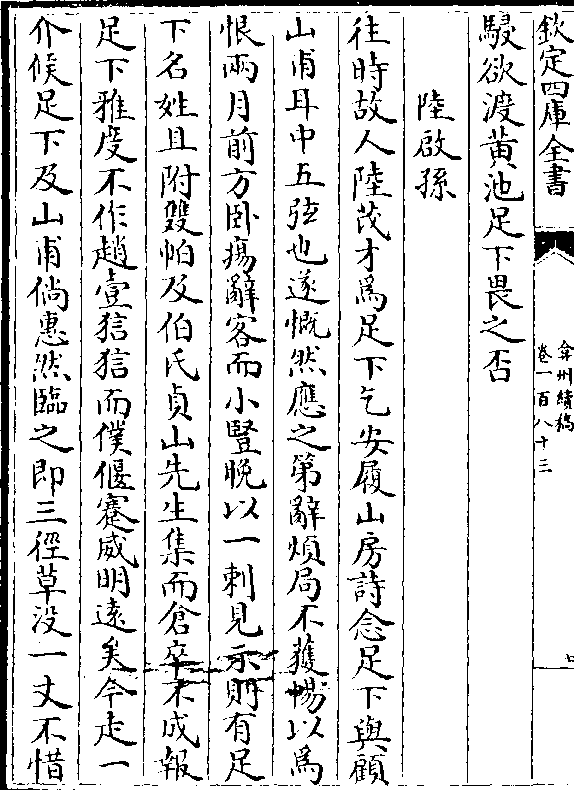 欽定四庫全書
弇州續稿
卷一百八十三
七
駸欲渡黄池足下畏之否
陸啟孫
往時故人陸茂才為足下乞安履山房詩念足下與顧
山甫耳中五弦也遂慨然應之第辭煩局不獲暢以為
恨兩月前方卧瘍辭客而小豎晚以一刺見示則有足
下名姓且附雙帕及伯氏貞山先生集而倉卒不成報
足下雅度不作趙壹狺狺而僕偃蹇威明遠矣今走一
介候足下及山甫倘惠然臨之即三徑草没一丈不惜